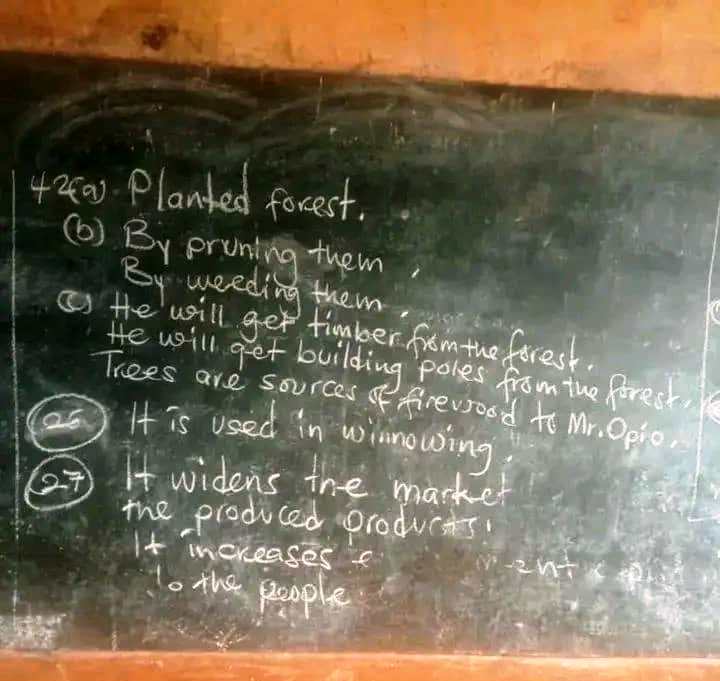 42(a) Planted forest.
(b) By pruning them.
By weeding them.
(c) He will get timber from the forest.
He will get building poles from the forest.
Trees are sources of firewood to Mr. Opio.
It is used in winnowing.
27 It widens the market
the produced products.
It increases
to the people